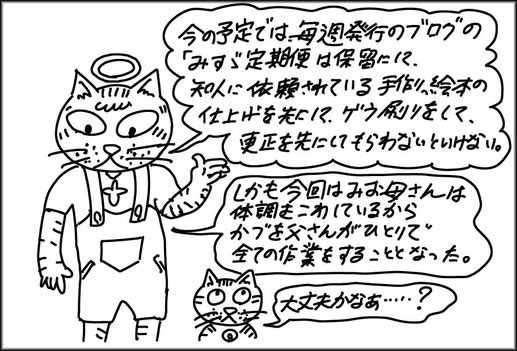 今の予定では、毎週発行のブログの
「みすゞ定期便は保留にして、
知人に依頼されている手作り絵本の
仕上げを先にして、ゲラ刷りをして、
更正を先にしてもらわないといけない。
しかも今回はみお母さんは
体調をこわしているから
かづを父さんがひとりで
全ての作業をすることとなった。
大丈夫かなぁ……?